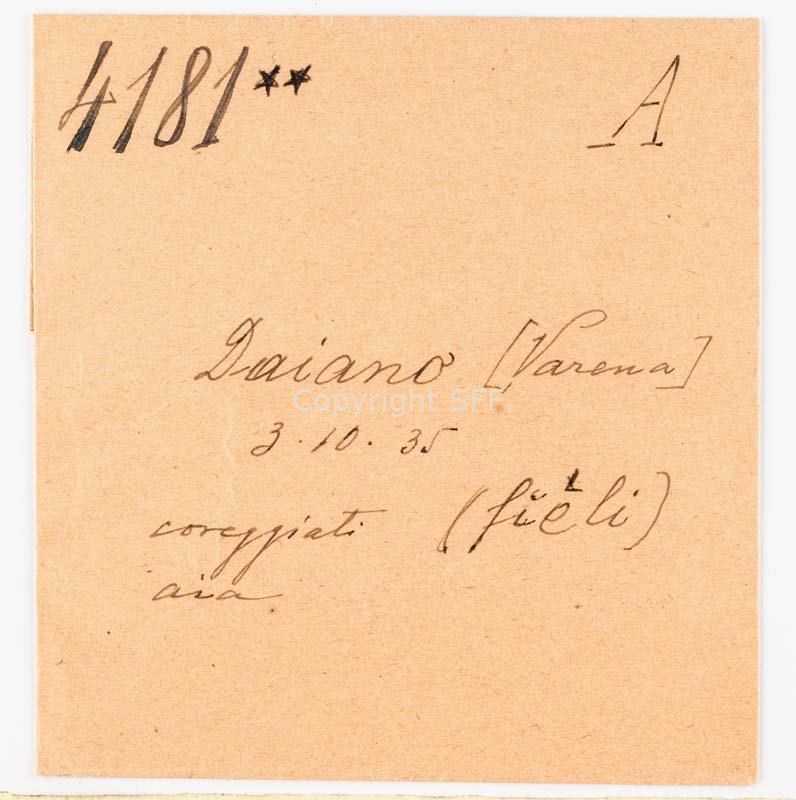 4181** A
Daiano [Varena]
Copyright SFF
3.10.35
coreggiati (fièli)
aia